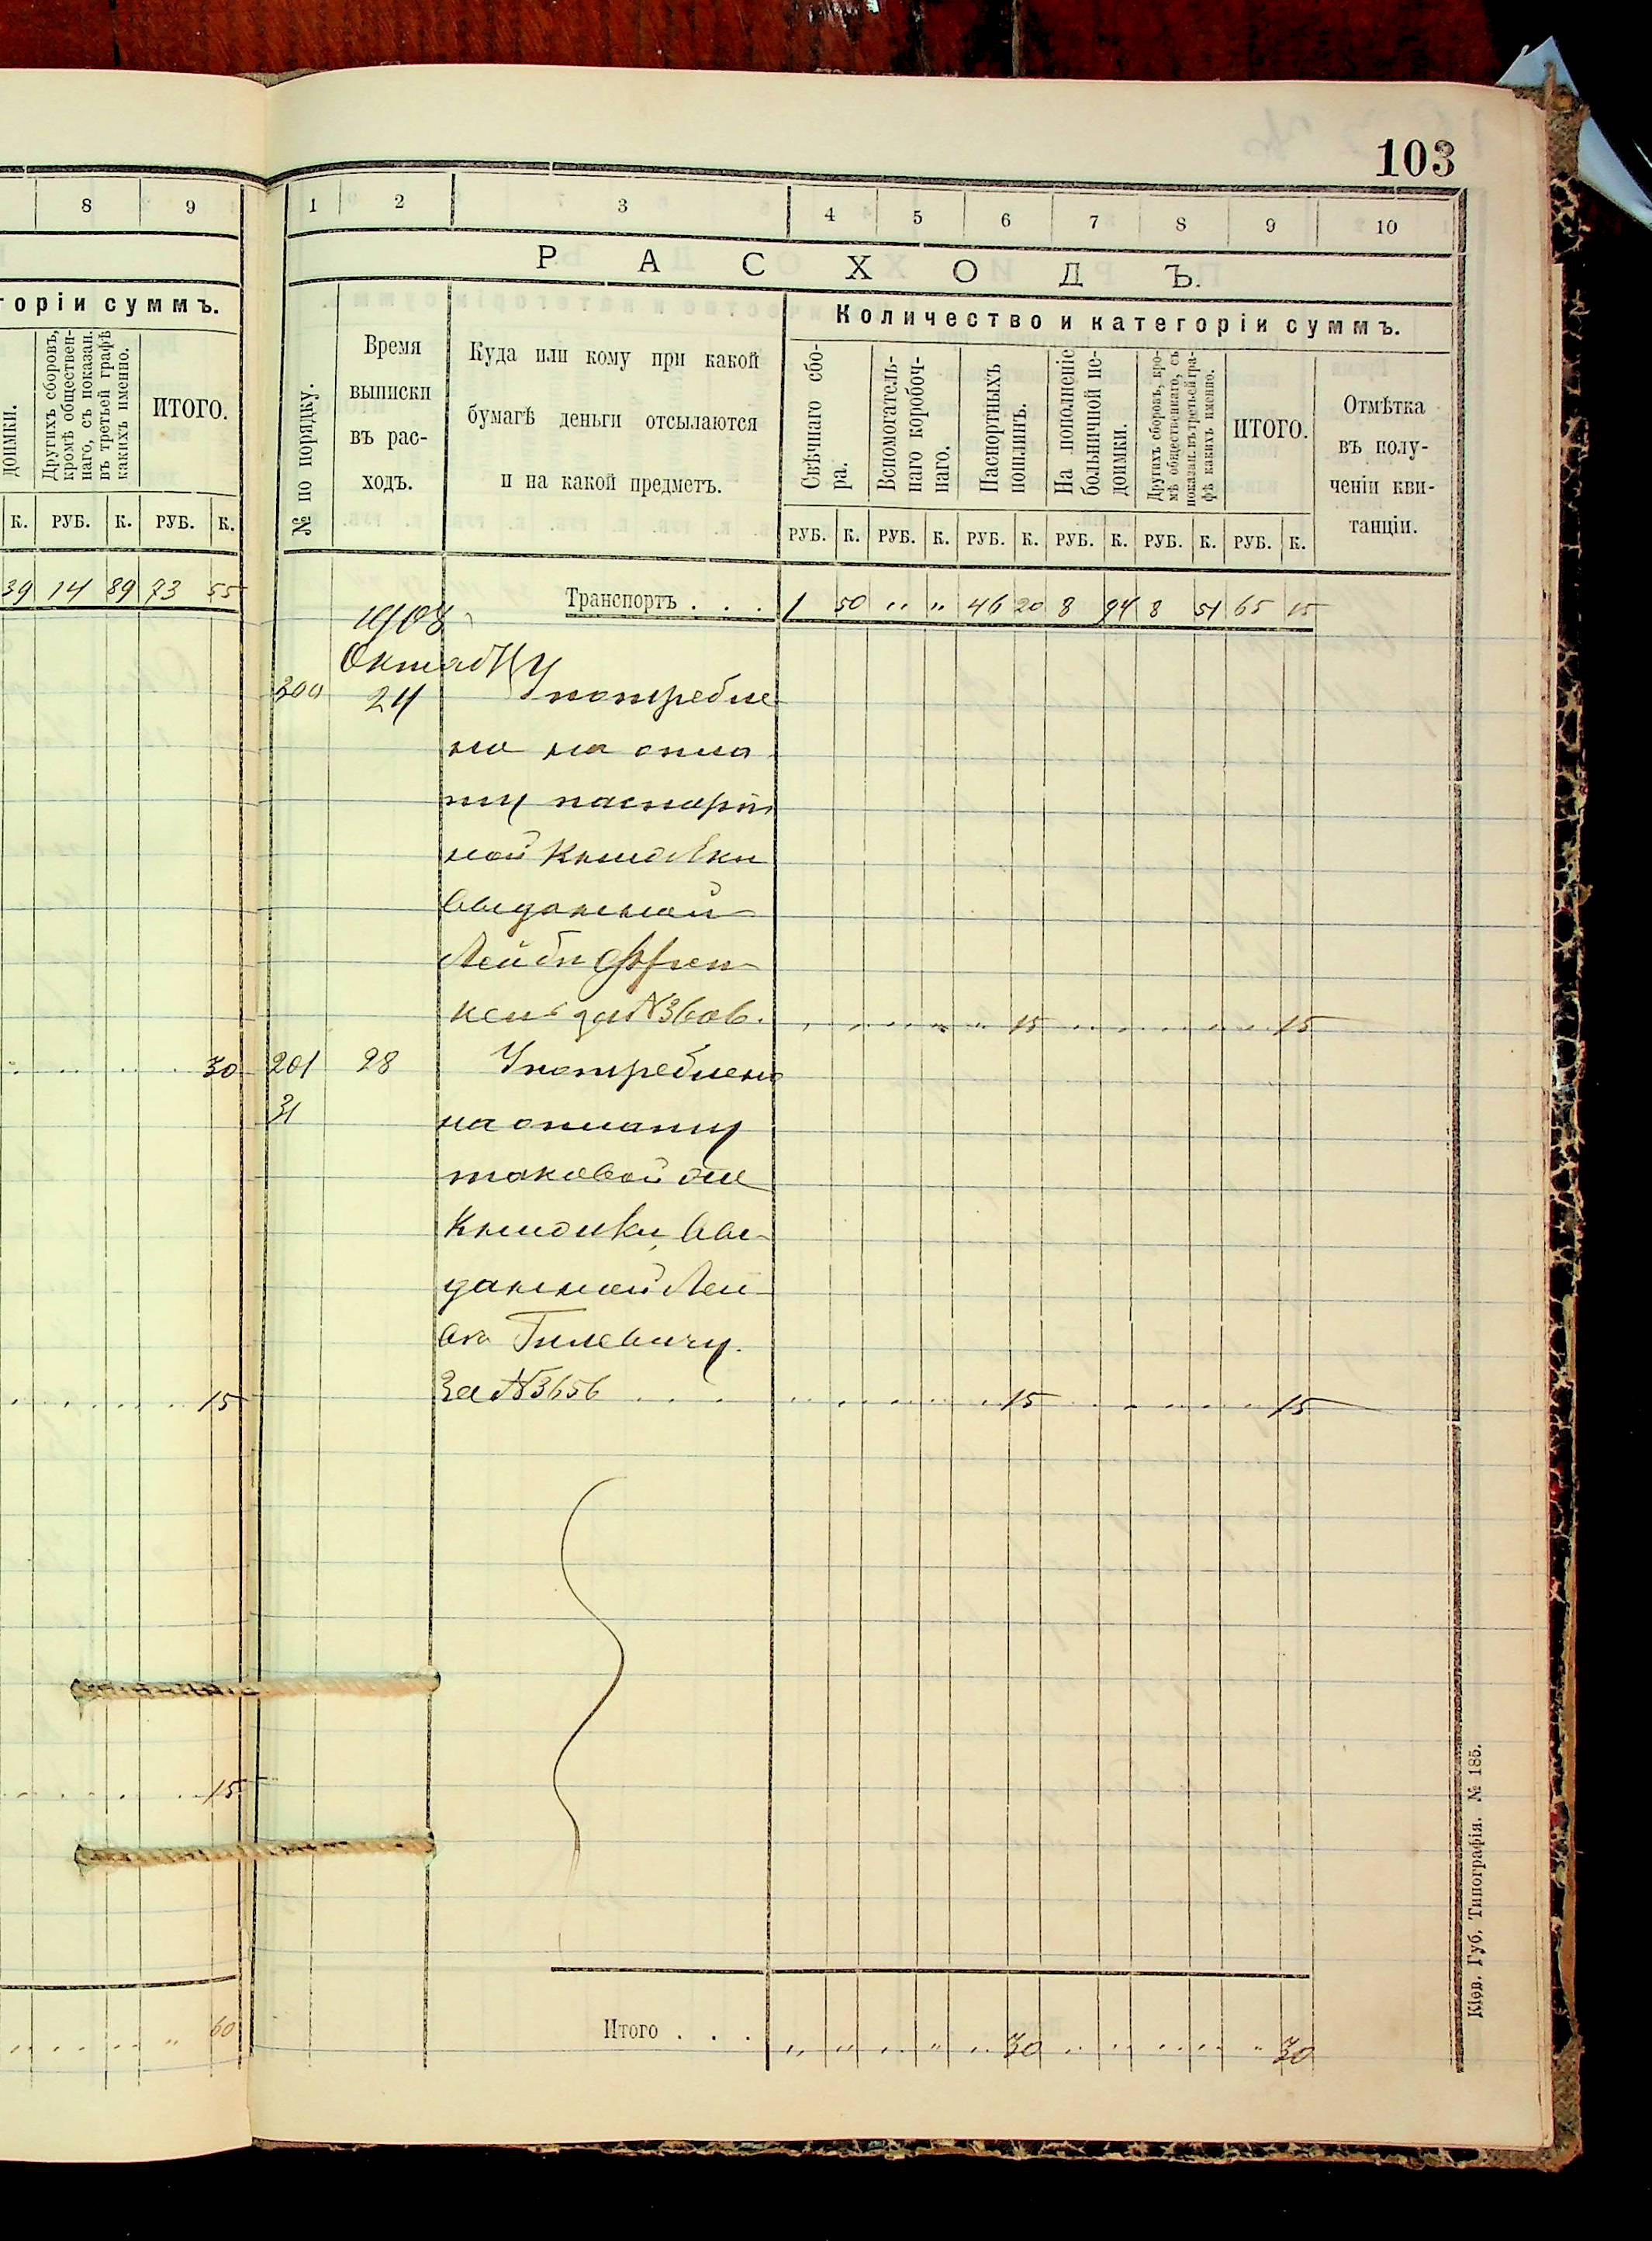 103
8 9
1 2 3 4 5 6 7 8 9 10
РАСХОДЪ.
горіи суммъ.
Количество и категоріи суммъ.
доимки.
Другихъ сборовъ,
кромѣ обществен-
наго, съ показан.
въ третьей графѣ
какихъ именно.
ИТОГО.
№ по порядку.
Время
выписки
въ рас-
ходъ.
Куда или кому при какой
бумагѣ деньги отсылаются
и на какой предметъ.
Свѣчнаго сбо-
ра.
Вспомогатель-
наго коробоч-
наго.
Паспортныхъ
пошлинъ.
На пополненіе
больничной не-
доимки.
Другихъ сборовъ, кро-
мѣ общественнаго, съ
показан. въ третьей гра-
фѣ какихъ именно.
ИТОГО.
Отмѣтка
въ полу-
ченіи кви-
танціи.
К. РУБ. К. РУБ. К.
РУБ. К. РУБ. К. РУБ. К. РУБ. К. РУБ. К. РУБ. К.
39 14 89 73 55
Транспортъ . . . 1 50 " " 46 20 8 94 8 51 65 15
1908
Октября
200 24 Употребле
но на опла
ту паспорт
ной книжки
выданной
Лейбѣ Френ
кель за №3606. 15 15
30 201 28 Употреблено
31 на оплату
таковой же
книжки, вы-
данной Лей
Гилевичу.
15 За №3656 . . . 15 15
15
60 Итого . . . " " " " " 30 " 30
Кіев. Губ. Типографія. № 185.